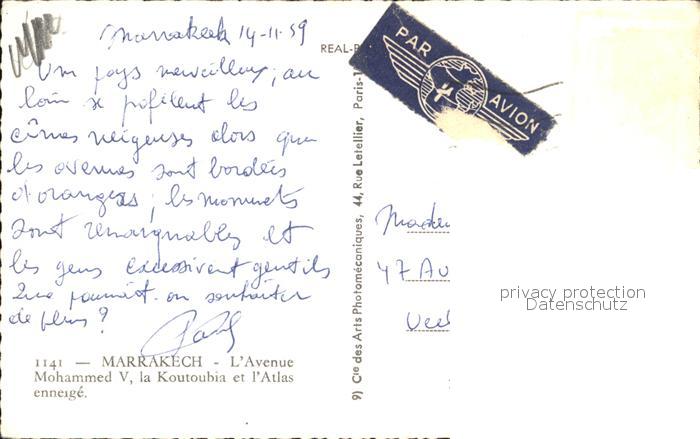 Marrakech 14-11-59
Un pays merveilleux, au
loin se profilent les
cîmes neigeuses alors que
les avenues sont bordées
d'orangers ; les monuments
sont remarquables et
les gens excessivent gentils
Que pourrait-on souhaiter
de plus ?
1141 — MARRAKECH - L'Avenue
Mohammed V, la Koutoubia et l'Atlas
enneigé.
REAL-P
9) Cie des Arts Photomécaniques, 44, Rue Letellier, Paris-1
PAR AVION
47 Av
privacy protection
Datenschutz